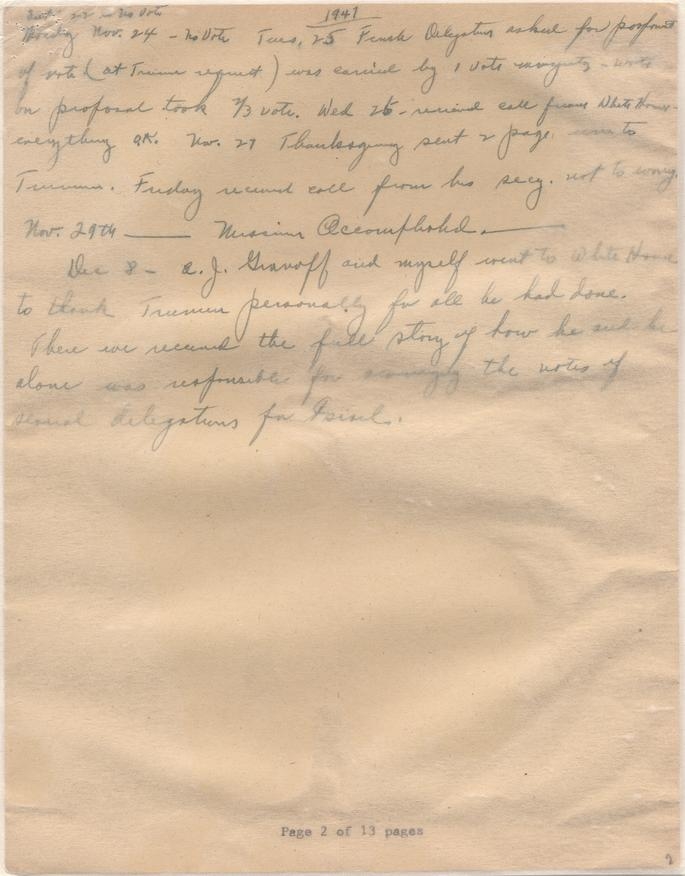 1947
22 - No Vote
Monday Nov. 24 - No Vote Tues, 25 French Delegation asked for
of vote (at Truman request) was carried by 1 vote - vote
on proposal took 2/3 vote. Wed 26 - received call from White House -
everything OK. Nov. 27 Thanksgiving sent 2 page to
Truman. Friday received call from his secy. not to worry.
Nov. 29th —— Mission Accomplished. ——
Dec 8 - A. J. Granoff and myself went to White House
to thank Truman personally for all he had done.
There we received the full story of how he and he
alone was responsible for the votes of
several delegations for Israel.
Page 2 of 13 pages
2